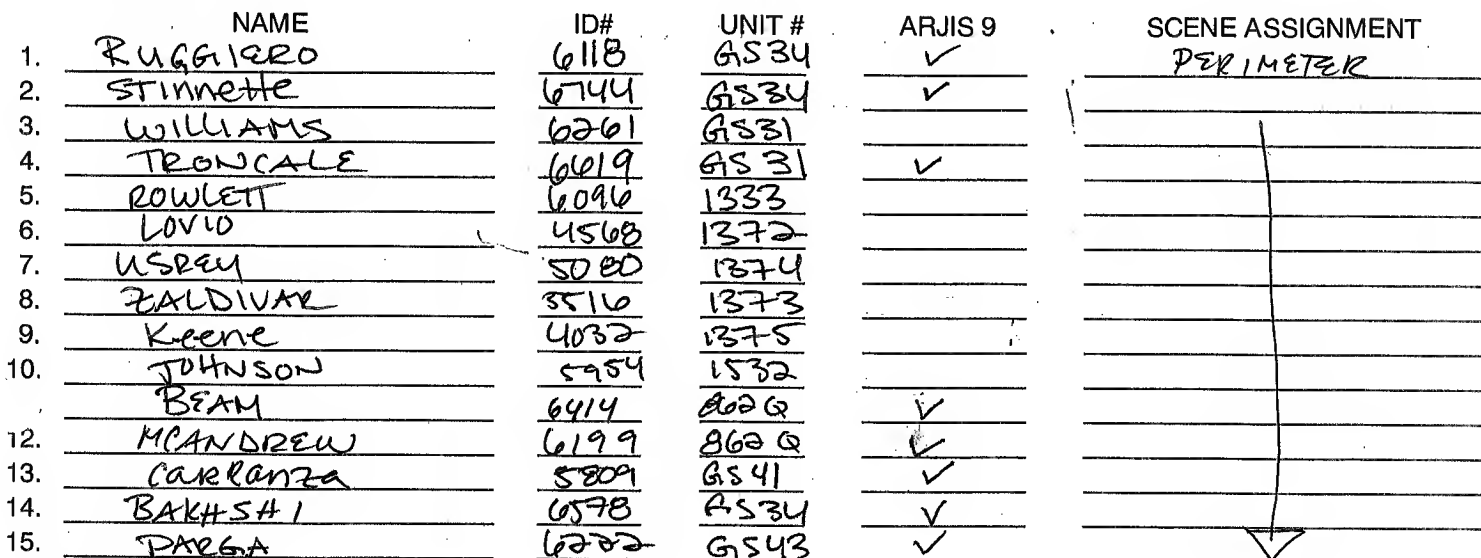 NAME ID# UNIT # ARJIS 9 SCENE ASSIGNMENT
1. RUGGIERO 6118 GS34 ✓ PERIMETER
2. Stinnette 6744 GS34 ✓
3. WILLIAMS 6261 GS31
4. TRONCALE 6619 GS31 ✓
5. ROWLETT 6096 1333
6. LOVIO 4568 1372
7. USREY 5080 1374
8. ZALDIVAR 3516 1373
9. Keene 4032 1375
10. JOHNSON 5954 1532
BEAM 6414 862Q ✓
12. MCANDREW 6199 862Q ✓
13. CARRANZA 5809 GS41 ✓
14. BAKHSHI 6578 GS34 ✓
15. PARGA 6222 GS43 ✓